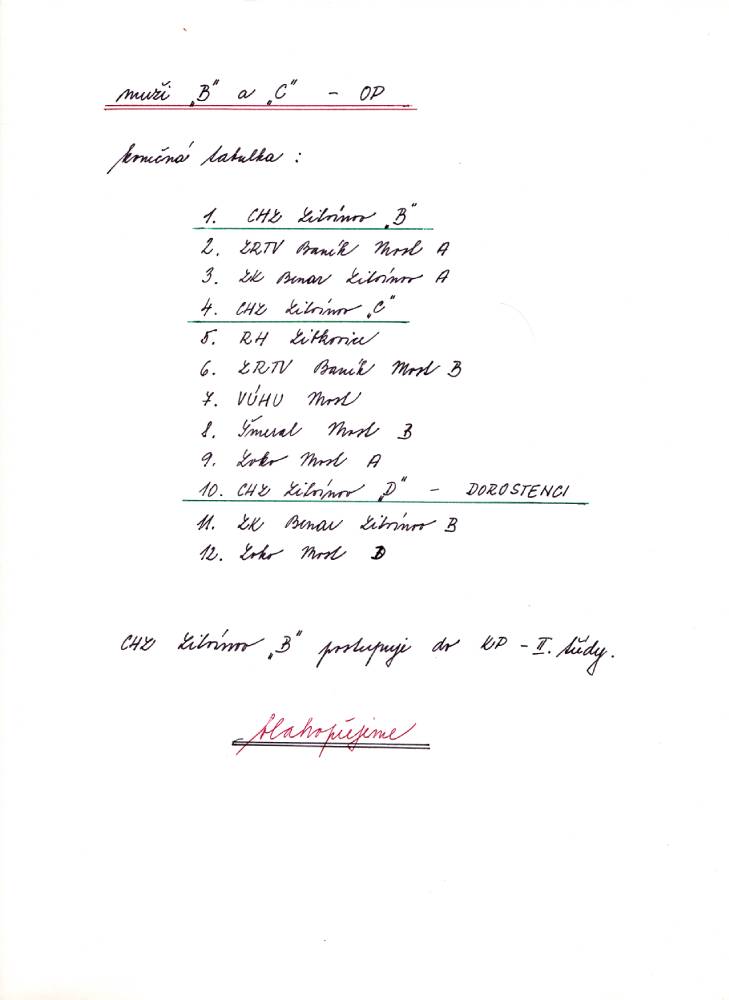 muži „B" a „C" - OP
konečná tabulka :
1. CHZ Litvínov „B"
2. ZRTV Baník Most A
3. ZK Benar Litvínov A
4. CHZ Litvínov „C"
5. RH Litkovice
6. ZRTV Baník Most B
7. VÚHU Most
8. Šmeral Most B
9. Loko Most A
10. CHZ Litvínov „D" - DOROSTENCI
11. ZK Benar Litvínov B
12. Loko Most B
CHZ Litvínov „B" postupuje do KP - II. třídy.
blahopřejeme